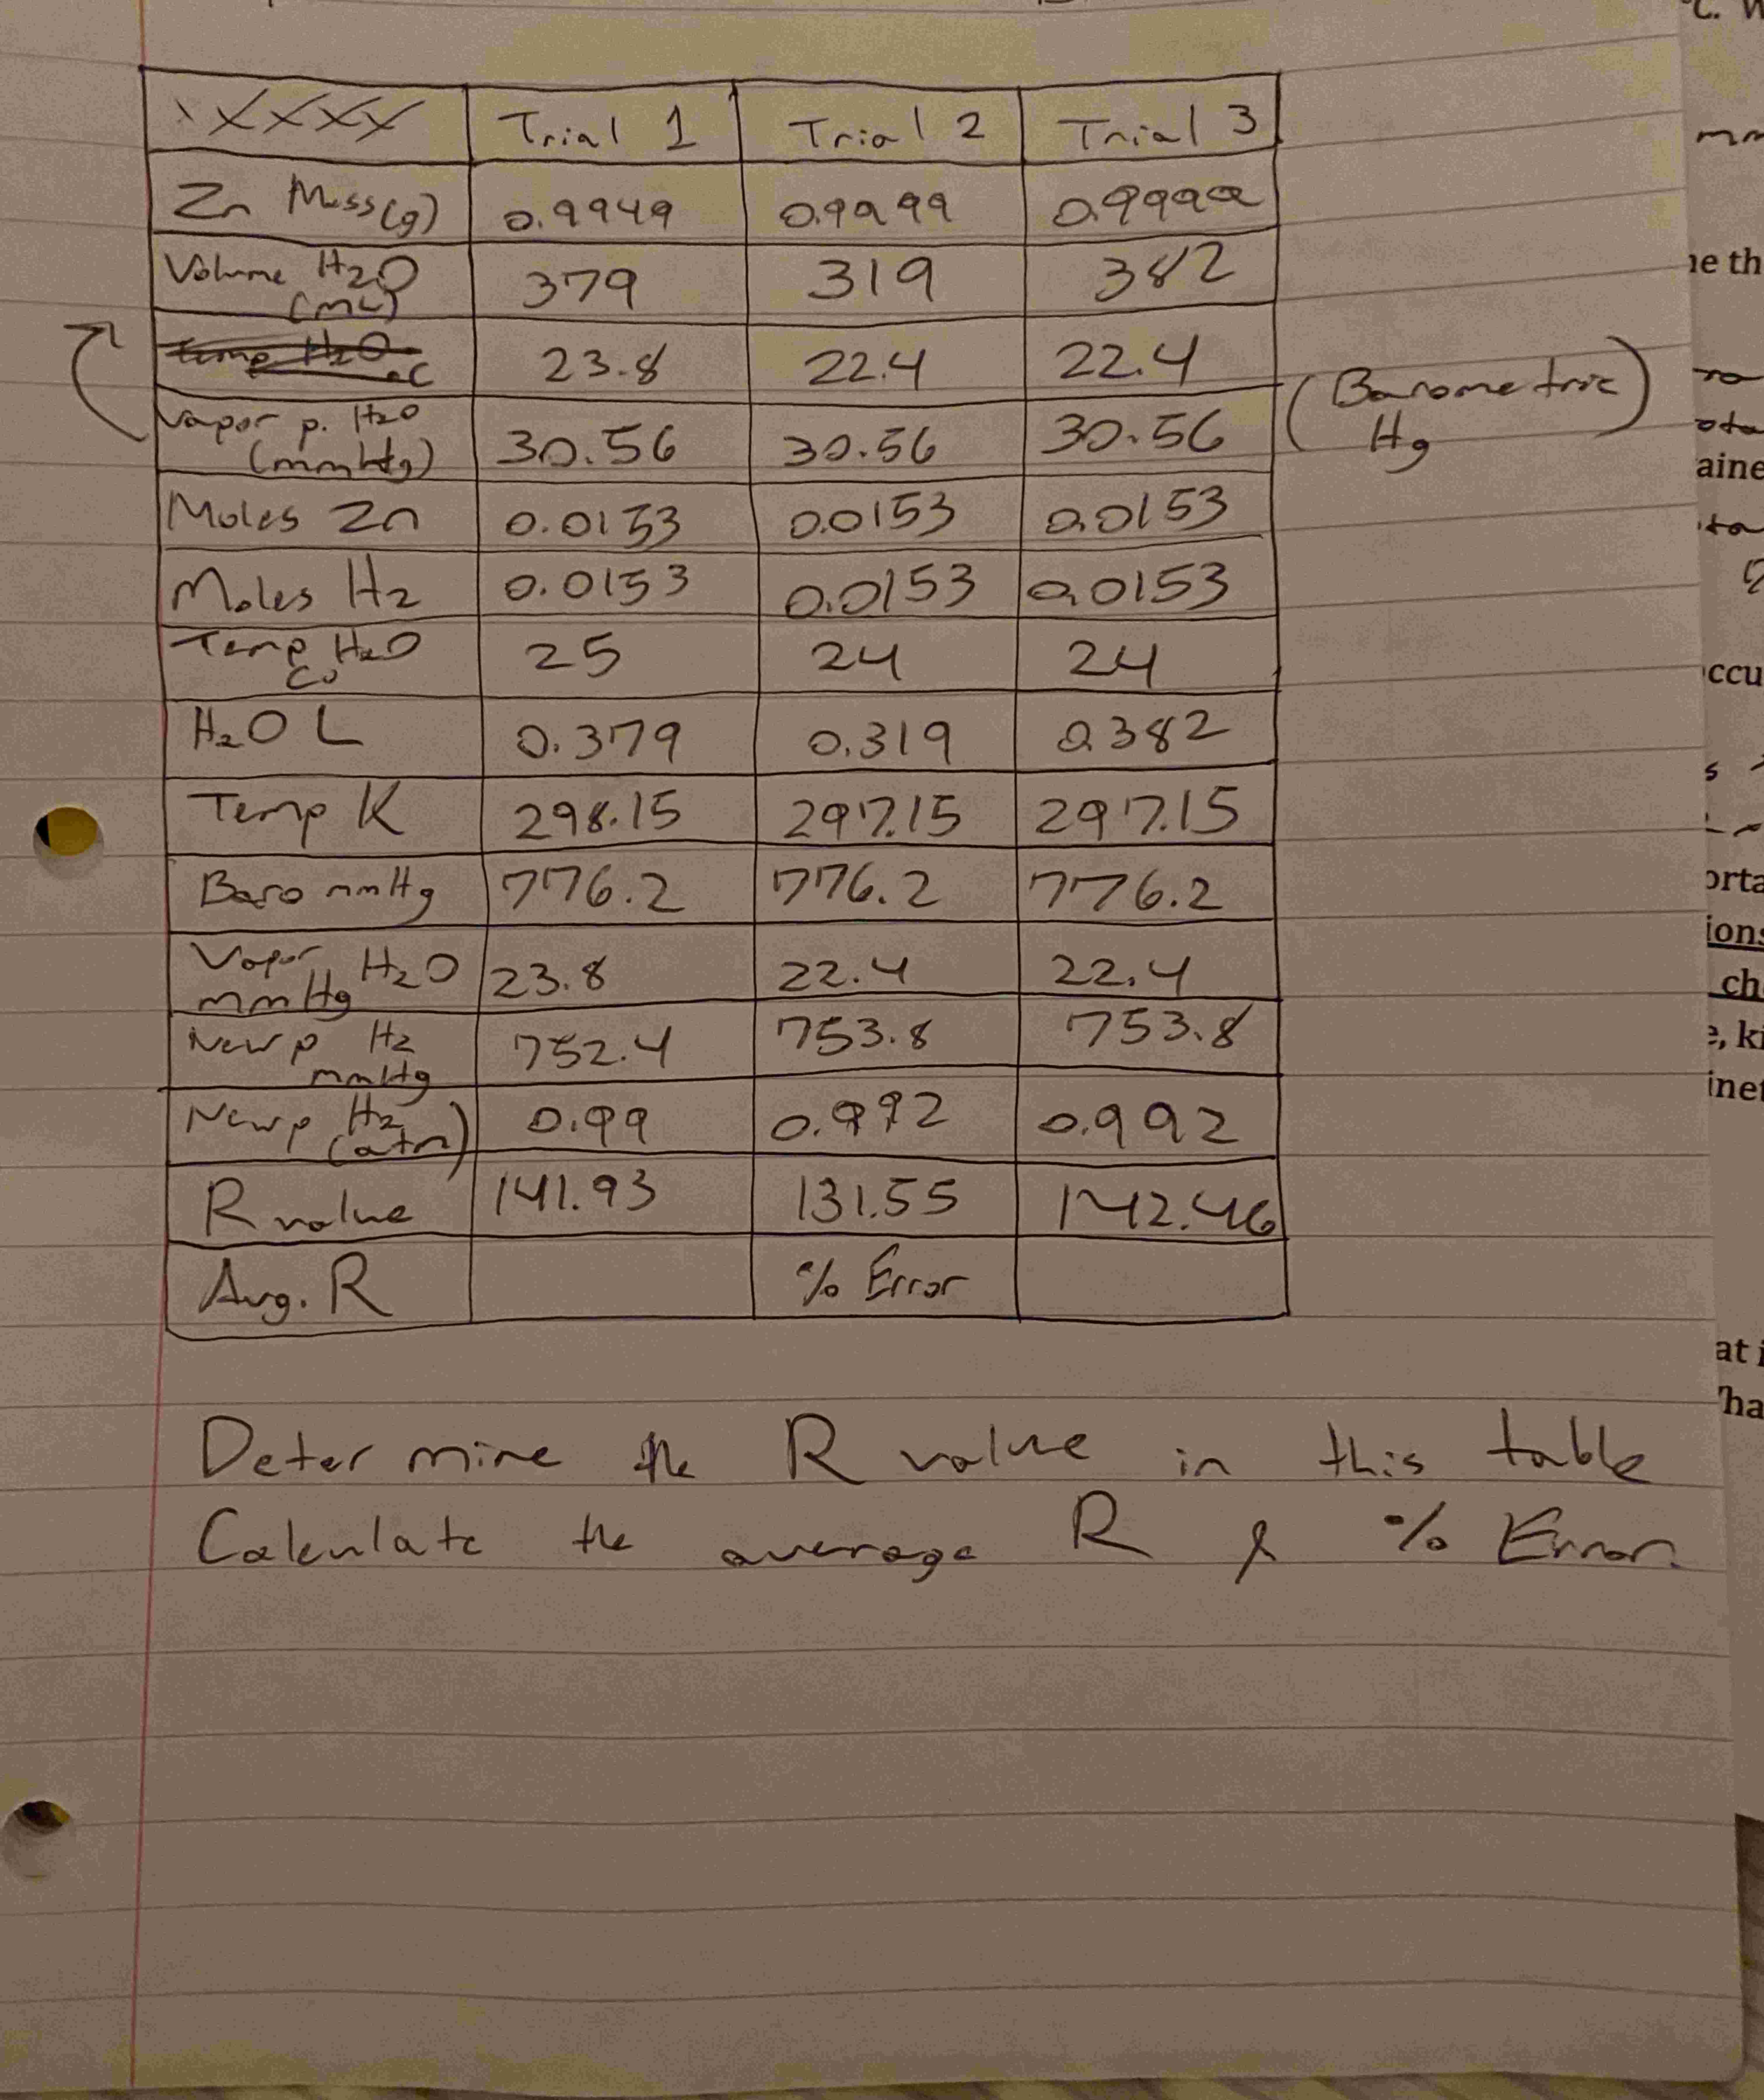 XXXX Trial 1 Trial 2 Trial 3
Zn Mass(g) 0.9949 0.9999 0.9999
Volume H2O (mL) 379 319 382
Temp H2O °C 23.8 22.4 22.4
Vapor p. H2O (mmHg) 30.56 30.56 30.56 (Barometric Hg)
Moles Zn 0.0153 0.0153 0.0153
Moles H2 0.0153 0.0153 0.0153
Temp H2O C° 25 24 24
H2O L 0.379 0.319 0.382
Temp K 298.15 297.15 297.15
Baro mmHg 776.2 776.2 776.2
Vapor H2O mmHg 23.8 22.4 22.4
New p H2 mmHg 752.4 753.8 753.8
New p H2 (atm) 0.99 0.992 0.992
R value 141.93 131.55 142.46
Avg. R % Error
Determine the R value in this table
Calculate the average R & % Error.